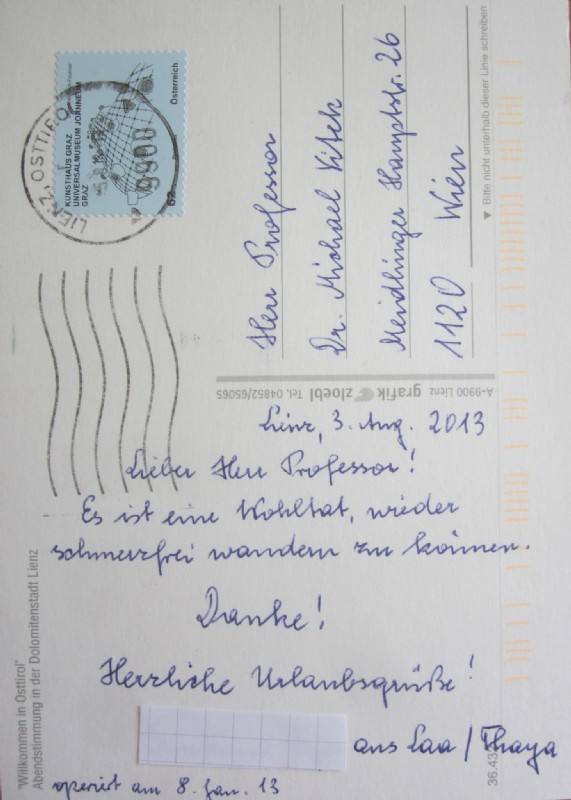 KUNSTHAUS GRAZ
UNIVERSALMUSEUM JOANNEUM
GRAZ
Österreich
62
LIENZ, OSTTIROL
9900
Herr Professor
Dr. Michael Vitek
Meidlinger Hauptstr. 26
1120 Wien
▼ Bitte nicht unterhalb dieser Linie schreiben
A-9900 Lienz grafik zloebl Tel. 04852/65065
Lienz, 3. Aug. 2013
Lieber Herr Professor!
Es ist eine Wohltat, wieder
schmerzfrei wandern zu können.
Danke!
Herzliche Urlaubsgrüße!
aus Laa / Thaya
operiert am 8. Jan. 13
"Willkommen in Osttirol"
Abendstimmung in der Dolomitenstadt Lienz